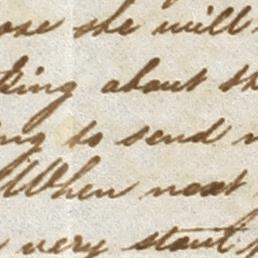 ose she will
king about th
ng to send
When next
very stout